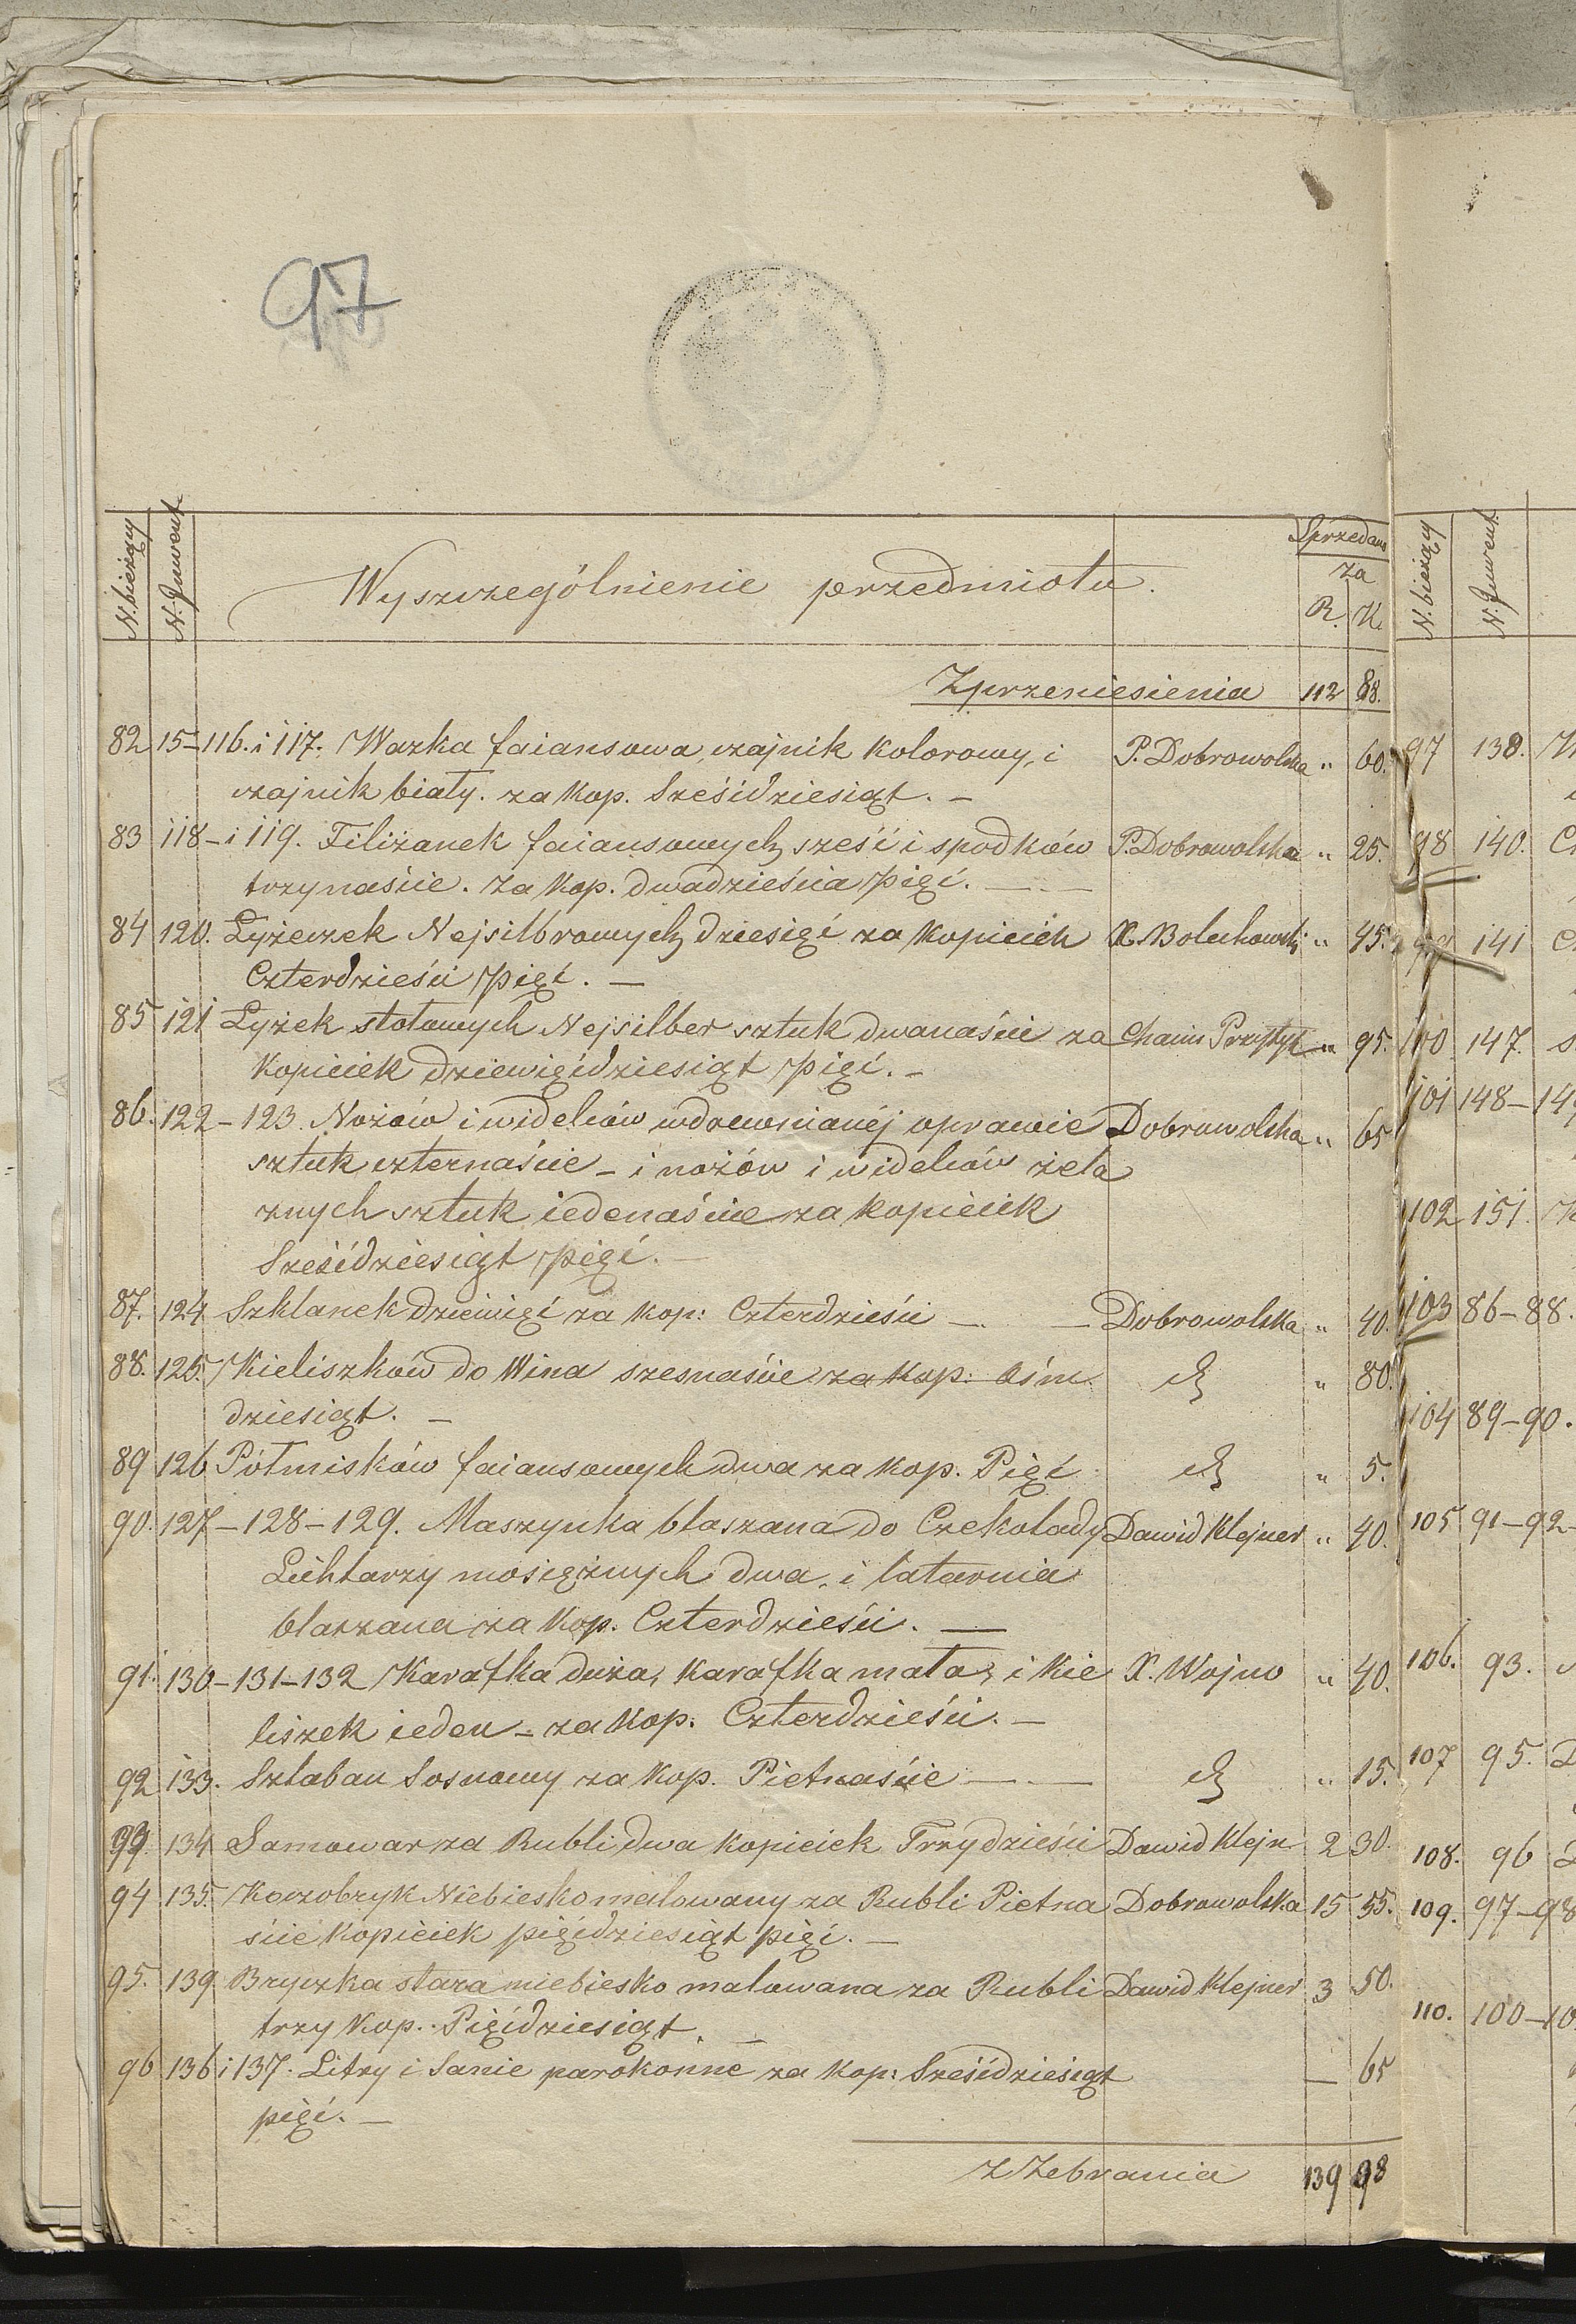 97
N. bieżący N. Inwent. Wyszczególnienie przedmiotu. Sprzedano
za
R. K.
Zprzeniesienia 112 88.
82 15-116. i 117. Wazka faiansowa, czajnik kolorowy, i P. Dobrowolska " 60.
czajnik biały. za kop. Sześćdziesiąt. —
83 118 - i 119. Filiżanek faiansowych sześć i spodków P. Dobrowolska " 25.
trzynaście. za kop. dwadzieścia pięć. —
84 120. Łyżeczek Nejsilbrowych dziesięć za kopieiek X. Boluhowski " 45.
Czterdzieści pięć. —
85 121 Łyżek stołowych Nejsilber sztuk dwanaście za Chaim Przytyk " 95.
kopieiek dziewięćdziesiąt pięć. -
86. 122 - 123. Nożów i widelców wdrewnianéj oprawie Dobrowolska " 65
sztuk czternaście - i nożów i widelców żela
znych sztuk iedenaście za kopieiek
Sześćdziesiąt pięć. —
87. 124 Szklanek dziewięć za kop: Czterdzieści — Dobrowolska " 40.
88. 125. Kieliszków do Wina szesnaście za kop: Ośm " 80.
dziesiąt. —
89 126 Półmisków faiansowych dwa za kop. Pięć " 5.
90. 127 - 128 - 129. Maszynka blaszana do Czekolady Dawid Klejner " 40.
Lichtarzy mosiężnych dwa, i latarnia
blaszana za kop. Czterdzieści. —
91. 130 - 131 - 132 Karafka duża, karafka mała, i kie X. Wojno " 40.
liszek ieden - za kop. Czterdzieści. —
92 133. Szlaban Sosnowy za kop. Pietnaście — " 15.
93. 134 Samowar za Rubli dwa kopieiek Trzydzieści Dawid Klejn 2 30.
94 135. Koczobryk Niebiesko malowany za Rubli Pietna Dobrowolska 15 55.
ście kopieiek pięćdziesiąt pięć. —
95. 139 Bryczka stara niebiesko malowana za Rubli Dawid Klejner 3 50.
trzy kop. Pięćdziesiąt. —
96 136 i 137. Litry i Sanie parokonne za kop: Sześćdziesiąt — 65
pięć. —
ZZebrania 139 98
N. bieżący N. Inwent.
97 138.
98 140.
99 141
100 147.
101 148 - 14
102 151.
103 86 - 88.
104 89 - 90.
105 91 - 92 -
106. 93.
107 95.
108. 96
109. 97 - 98
110. 100 - 10